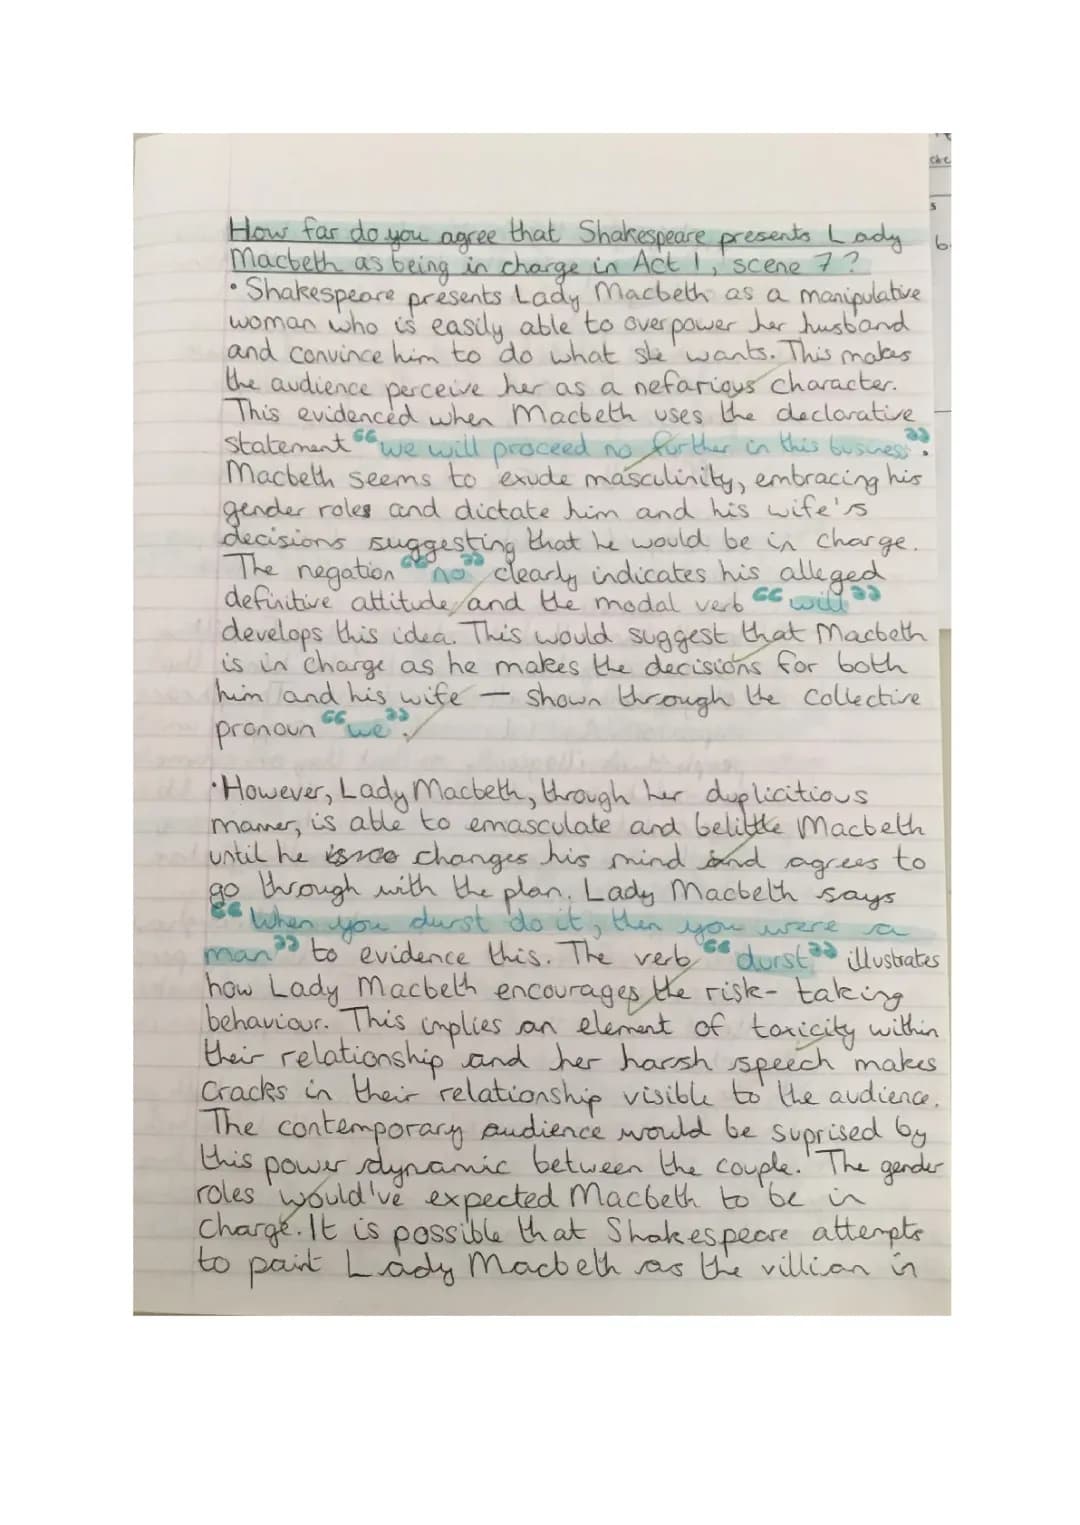 How far do you agree that Shakespeare presents Lady
Macbeth as being in charge in Act 1, scene 7?
• Shakespeare presents Lady Macbeth as a manipulative
woman who is easily able to overpower her husband
and convince him to do what she wants. This makes
the audience perceive her as a nefarious character.
This evidenced when Macbeth uses the declarative
statement "we will proceed no further in this business".
Macbeth seems to exude masculinity, embracing his
gender roles and dictate him and his wife's
decisions suggesting that he would be in charge.
The negation "no" clearly indicates his alleged
definitive attitude and the modal verb "will"
develops this idea. This would suggest that Macbeth
is in charge as he makes the decisions for both
him and his wife – shown through the collective
pronoun "we".
• However, Lady Macbeth, through her duplicitious
manner, is able to emasculate and belittle Macbeth
until he changes his mind and agrees to
go through with the plan. Lady Macbeth says
"When you durst do it, then you were a
man" to evidence this. The verb "durst" illustrates
how Lady Macbeth encourages the risk-taking
behaviour. This implies an element of toxicity within
their relationship and her harsh speech makes
cracks in their relationship visible to the audience.
The contemporary audience would be suprised by
this power dynamic between the couple. The gender
roles would've expected Macbeth to be in
charge. It is possible that Shakespeare attempts
to paint Lady Macbeth as the villian in